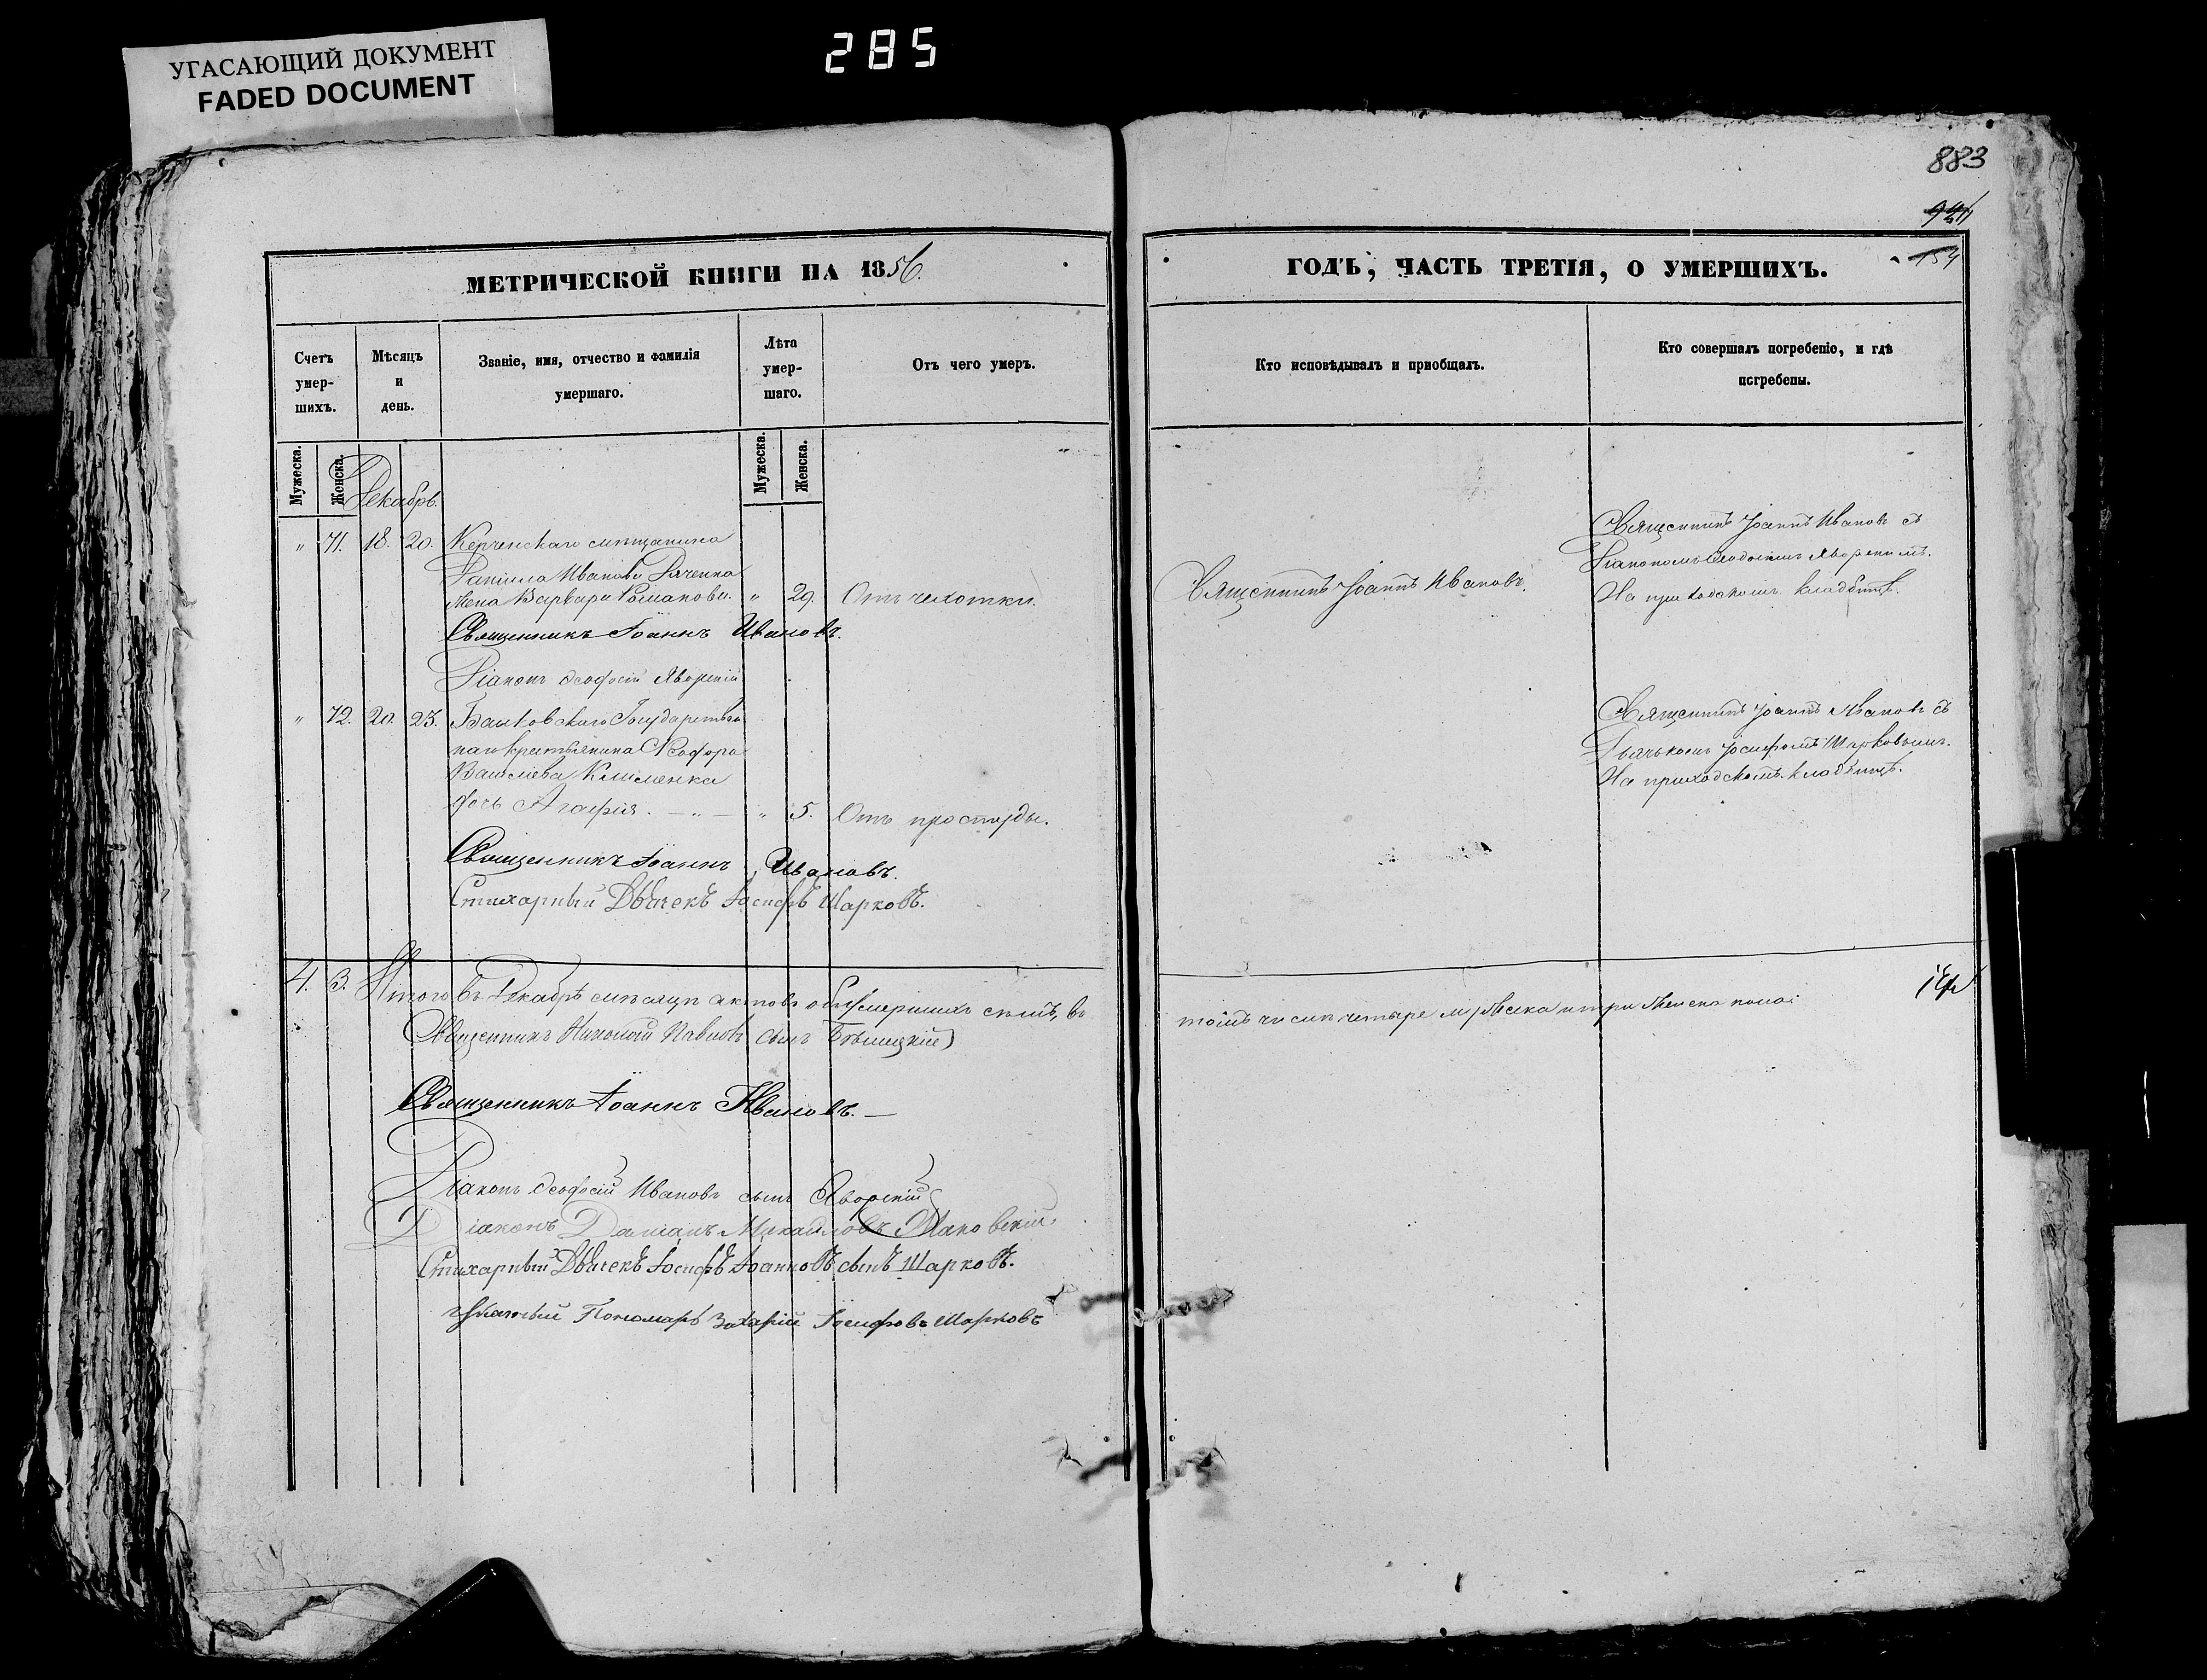 УГАСАЮЩИЙ ДОКУМЕНТ
FADED DOCUMENT
285
883
154
МЕТРИЧЕСКОЙ КНИГИ НА 1856.
Счетъ умер-шихъ.
Мѣсяцъ и день.
Званіе, имя, отчество и фамилія умершаго.
Лѣта умер-шаго.
Отъ чего умеръ.
Мужеска.
Женска.
Мужеска.
Женска.
Декабрь.
" 71. 18. 20. Керченскаго мѣщанина
Даніила Иванова Дяченка
жена Варвара Романова. " 29. Отъ чехотки.
Священникъ Іоаннъ Ивановъ.
Діаконъ Ѳеофосій Яворскій
" 72. 20. 23. Государствен
наго крестьянина
дочь Агафія. — " — " 5. Отъ простуды.
Священникъ Іоаннъ Ивановъ.
Стихарный Дьячекъ Іосифъ Шарковъ.
4. 3. Итого въ Декабрѣ мѣсяцѣ актовъ объ умершихъ семь, въ
Священникъ Николай Павловъ сынъ
Священникъ Іоаннъ Ивановъ. —
Діаконъ Ѳеофосій Ивановъ сынъ Яворскій
Діаконъ Даміанъ Михайловъ
Стихарный Дьячекъ Іосифъ Іоанновъ сынъ Шарковъ.
Пономарь Захарій Іосифовъ Шарковъ
ГОДЪ, ЧАСТЬ ТРЕТІЯ, О УМЕРШИХЪ.
Кто исповѣдывалъ и пріобщалъ.
Кто совершалъ погребеніе, и гдѣ погребены.
Священникъ Іоаннъ Ивановъ.
Священникъ Іоаннъ Ивановъ съ
Діакономъ Ѳеодосіемъ Яворскимъ.
На приходскомъ кладбищѣ.
Священникъ Іоаннъ Ивановъ съ
Дьячькомъ Іосифомъ Шарковымъ.
На приходскомъ кладбищѣ.
томъ числѣ четыре мужеска и три женска пола